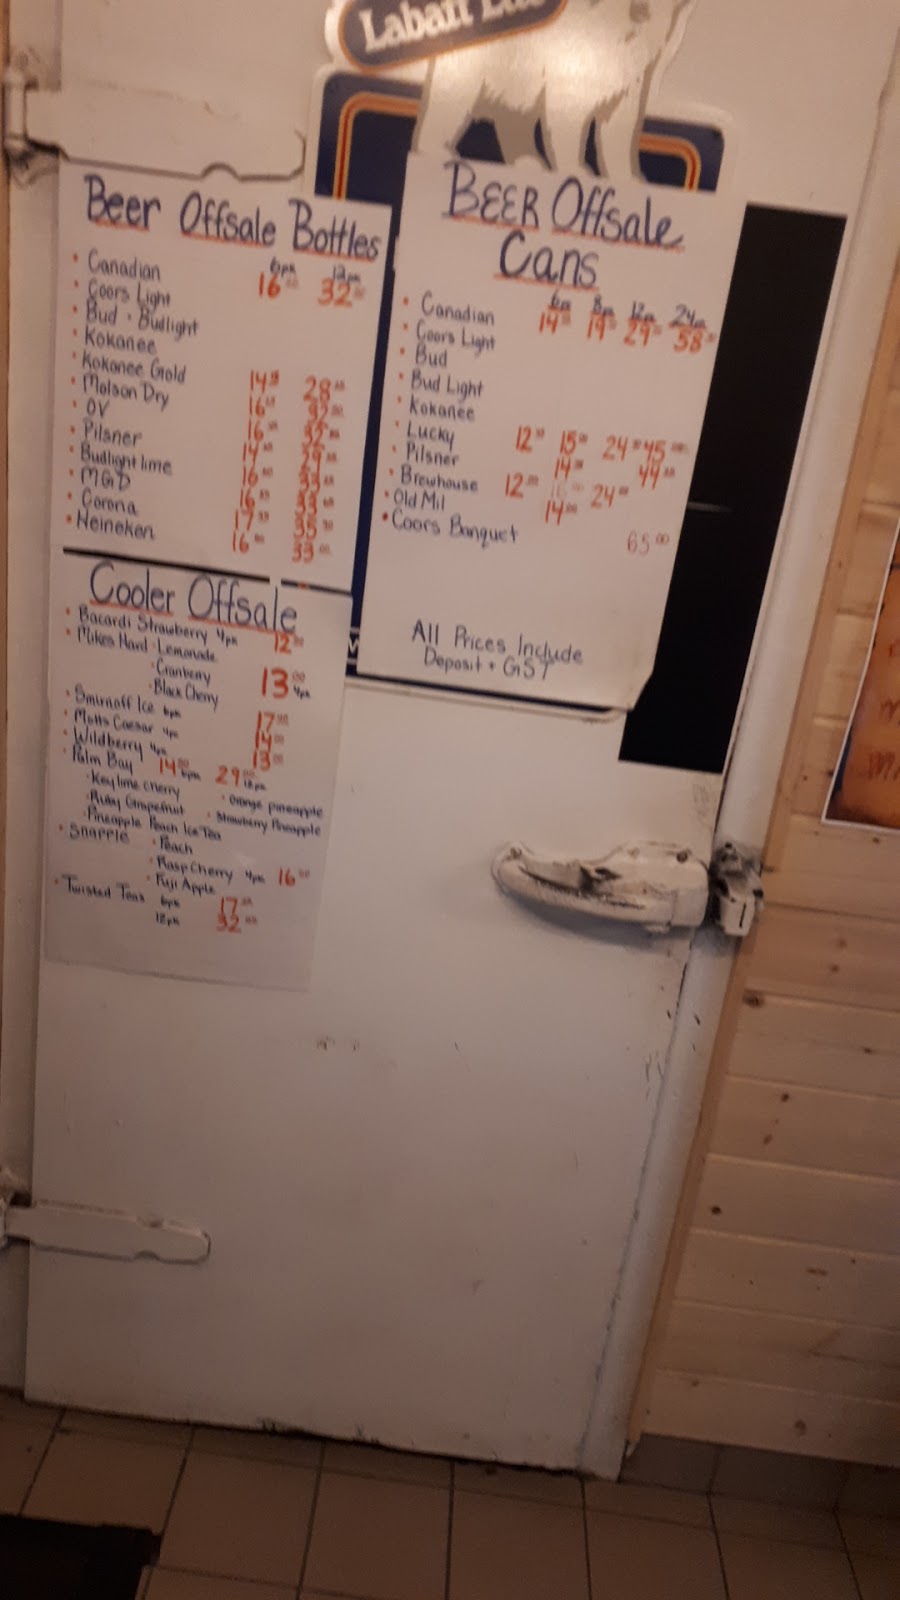 Labatt Lite
Beer Offsale Bottles
6pk 12pk
• Canadian 16.00 32.00
• Coors Light
• Bud • Budlight
• Kokanee
• Kokanee Gold
• Molson Dry 14 28
• OV 16 32
• Pilsner 16 32
• Budlight lime 14
• MGD 16 33
• Corona 16 33
• Heineken 17 35
16 33
BEER Offsale
Cans
6pk 8pk 12pk 24pk
• Canadian 14 19 29 58
• Coors Light
• Bud
• Bud Light
• Kokanee
• Lucky 12 15 24 45
• Pilsner 14 44
• Brewhouse 12 24
• Old Mil 14
• Coors Banquet 65.00
All Prices Include
Deposit + GST
Cooler Offsale
• Bacardi Strawberry 4pk 12
• Mikes Hard • Lemonade
• Cranberry 13.00 4pk
• Black Cherry
• Smirnoff Ice 6pk 17
• Motts Caesar 4pk 14
• Wildberry 4pk 13
• Palm Bay 14.00 6pk 29.00 12pk
• Key lime cherry • Orange pineapple
• Ruby Grapefruit • Strawberry Pineapple
• Pineapple Peach Ice Tea
• Snapple • Peach
• Rasp Cherry 4pk 16.00
• Fuji Apple
• Twisted Teas 6pk 17
12pk 32